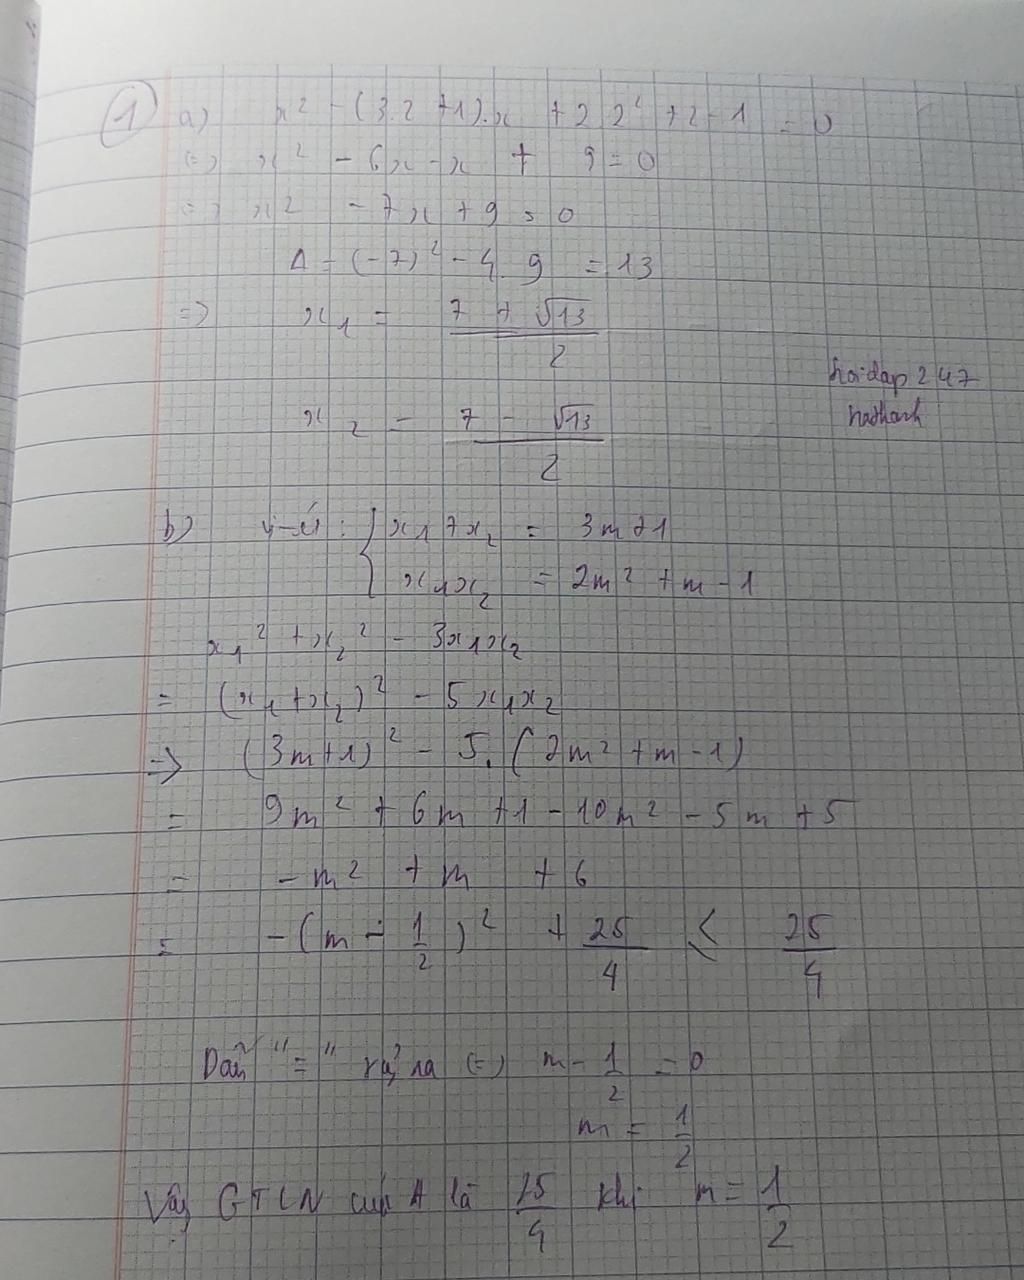 ① a) x² - (3.2 + 1).x + 2 2² + 2 - 1 = 0
(=) x² - 6x - x + 9 = 0
(=) x² - 7x + 9 = 0
Δ = (-7)² - 4. 9 = 13
=> x₁ = (7 + √13)/2
hoidap 247
x₂ = (7 - √13)/2
b) Vi-ét : { x₁ + x₂ = 3m + 1
x₁x₂ = 2m² + m - 1
x₁² + x₂² - 3x₁x₂
= (x₁ + x₂)² - 5x₁x₂
=> (3m + 1)² - 5. (2m² + m - 1)
= 9m² + 6m + 1 - 10m² - 5m + 5
= - m² + m + 6
= - (m - 1/2)² + 25/4 ≤ 25/4
Dấu "=" xảy ra (=) m - 1/2 = 0
m = 1/2
Vậy GTLN của A là 25/4 khi m = 1/2